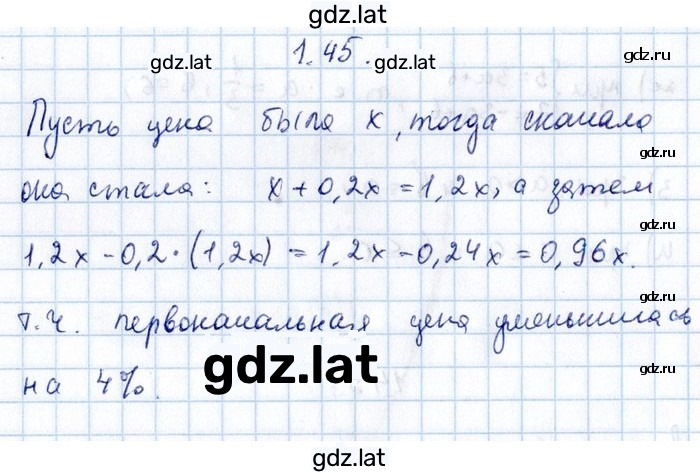 gdz.lat
gdz.lat
gdz.lat
gdz.ru
1.45.
Пусть цена была x, тогда сначала
она стала: x + 0,2x = 1,2x, а затем
gdz.ru
1,2x - 0,2 · (1,2x) = 1,2x - 0,24x = 0,96x.
т.ч. первоначальная цена уменьшилась
gdz.ru
на 4%.
gdz.lat
gdz.lat
gdz.ru